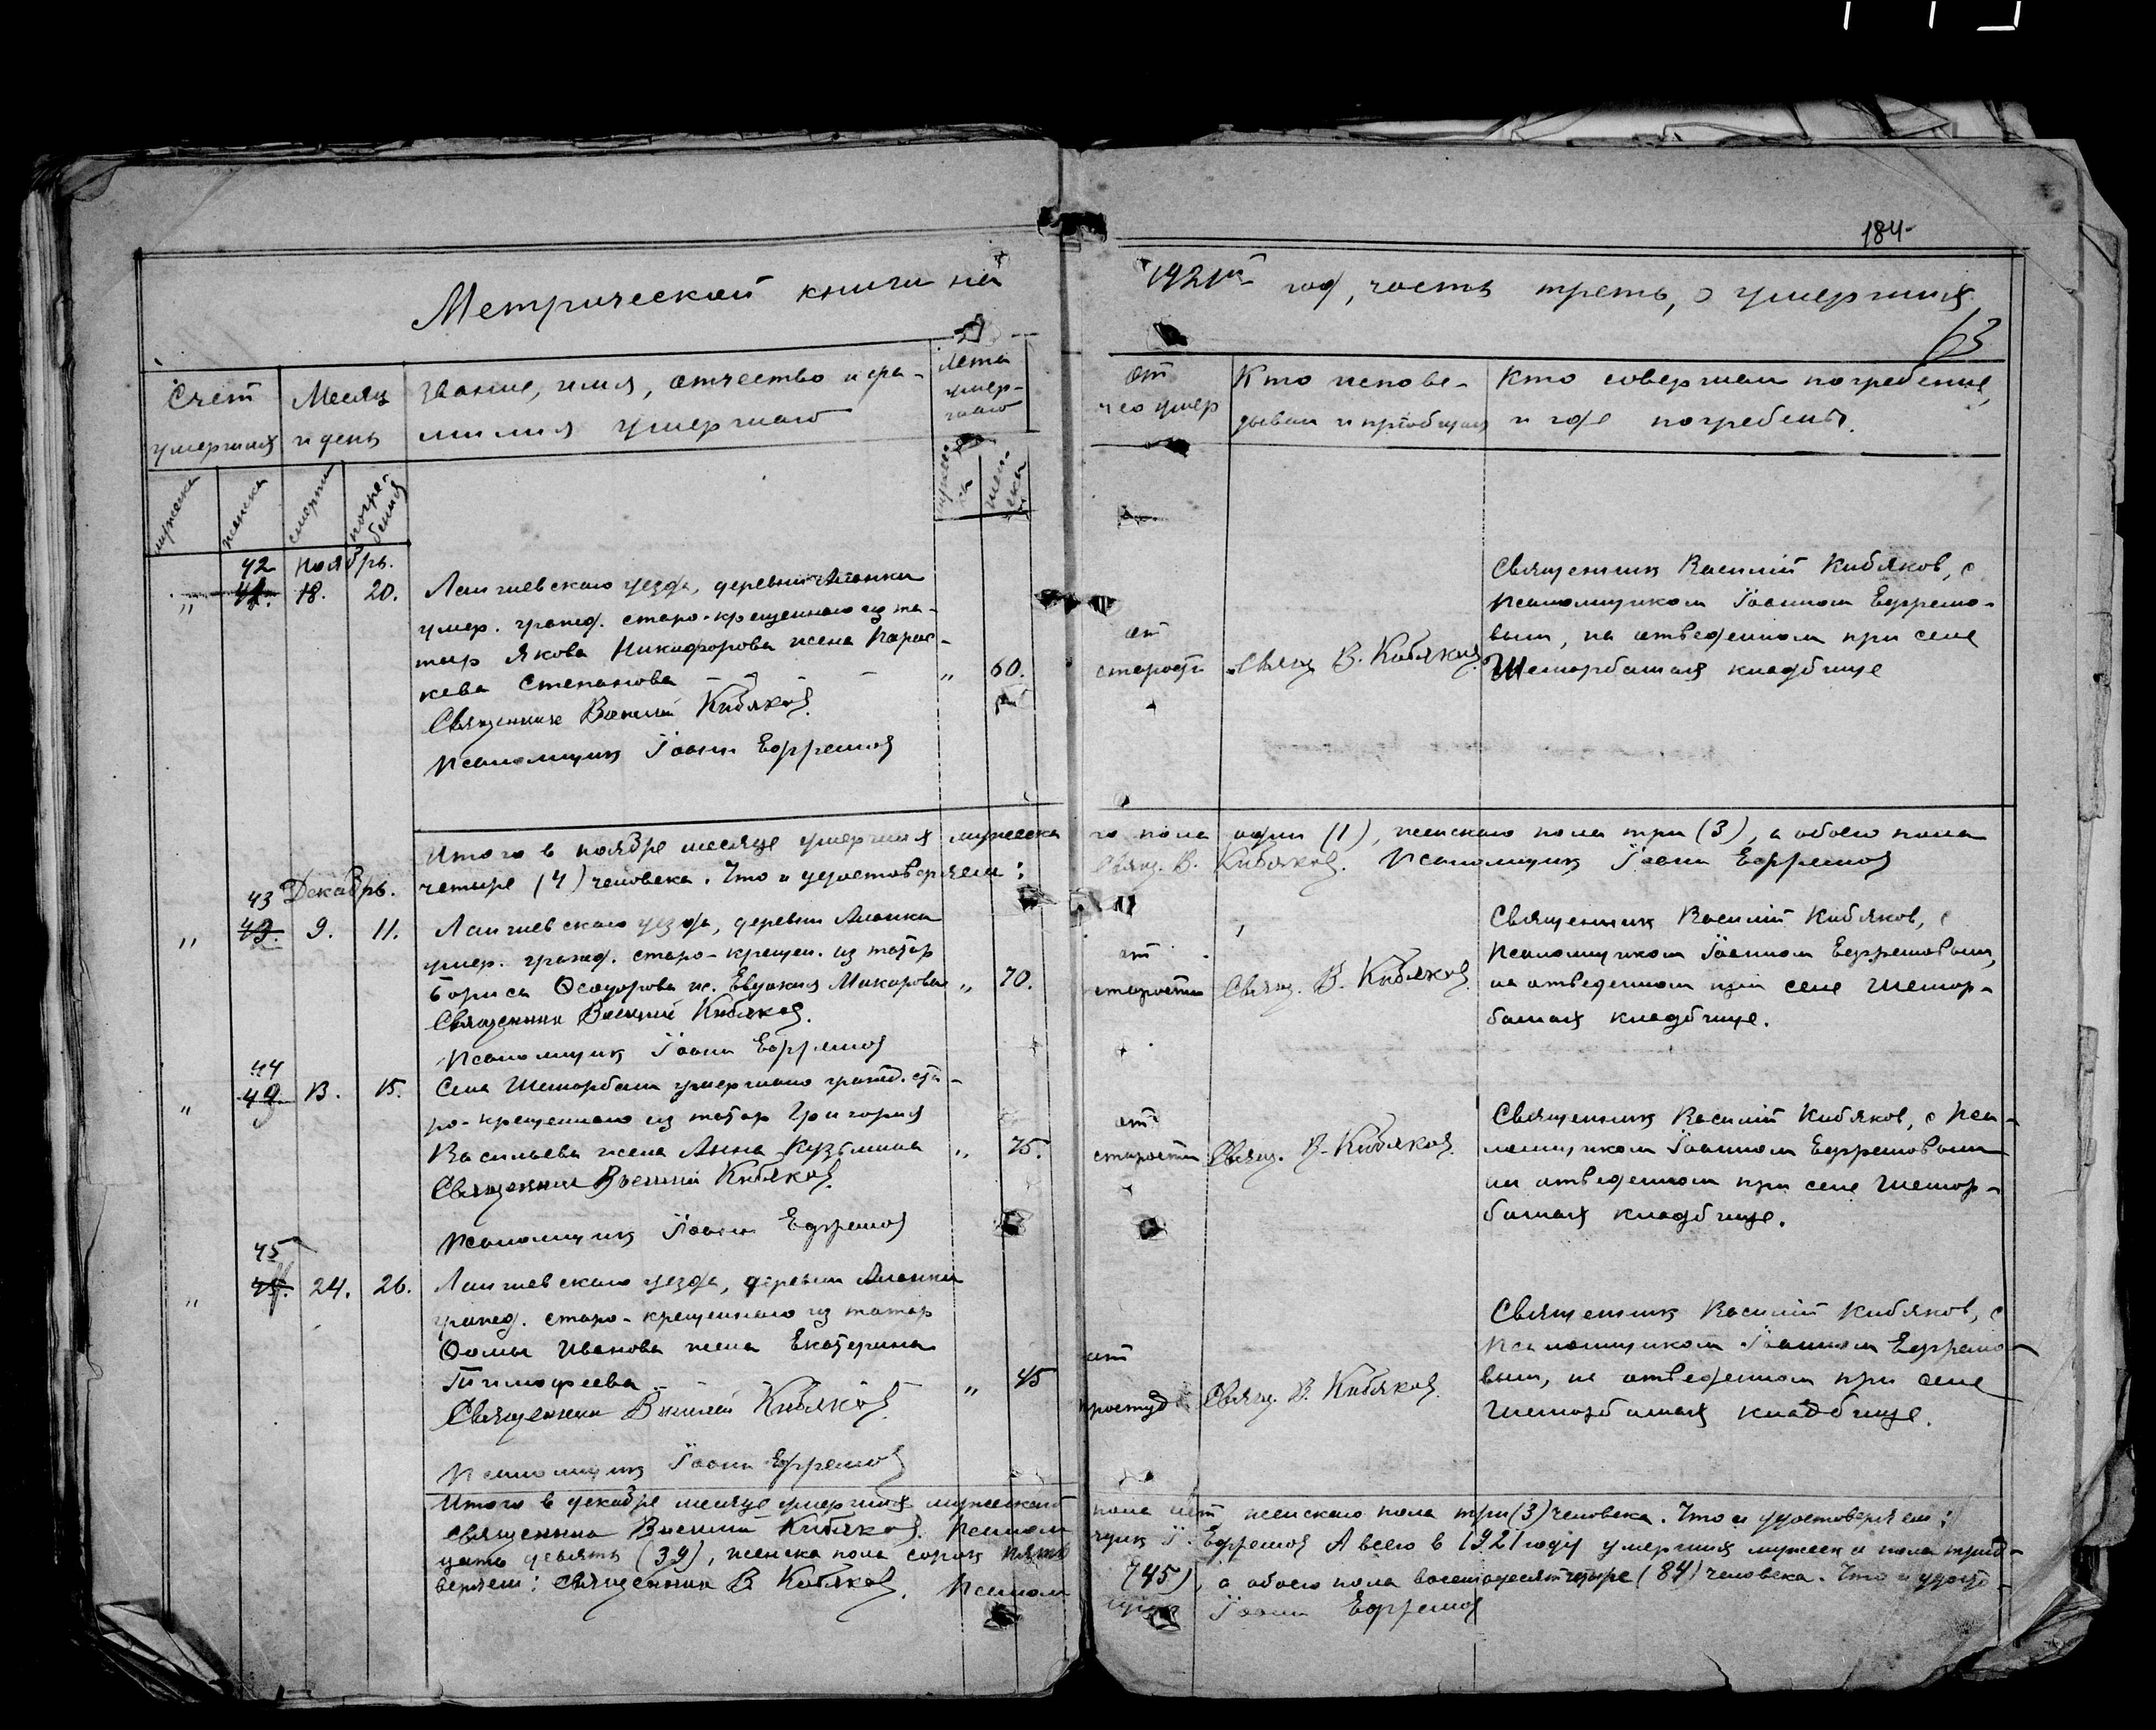 184
Метрической книги на 1921й год, часть треть, о умерших
63
Счет умерших
Месяц и день
Звание, имя, отчество и фамилия умершаго
Лета умершаго
От чего умер
Кто исповедывал и приобщал
Кто совершал погребение, и где погребены.
мужска
женска
смерти
погребения
мужска
женска
42 Ноябрь.
" 18. 20. Лаишевскаго уезда, деревни
умер. гражд. старо-крещеннаго из та-
тар Якова Никифорова жена Парас-
кева Степанова " 60.
Священник Василий Кибяков.
Псаломщик Іоанн Ефремов
от
старости
Свящ. В. Кибяков.
Священник Василий Кибяков, с
псаломщиком Іоанном Ефремо-
вым, на отведенном при селе
Шеморбашах кладбище
Итого в ноябре месяце умерших мужска го пола один (1), женскаго пола три (3), а обоего пола
четыре (4) человека. Что и удостоверяем: Свящ. В. Кибяков. Псаломщик Іоанн Ефремов
43 Декабрь.
" 9. 11. Лаишевскаго уезда, деревни
умер. гражд. старо-крещен. из татар
Бориса Ѳеодорова ж. Евдокия Макарова " 70.
Священник Василий Кибяков.
Псаломщик Іоанн Ефремов
от
старости
Свящ. В. Кибяков.
Священник Василий Кибяков, с
псаломщиком Іоанном Ефремовым,
на отведенном при селе Шемор-
башах кладбище.
44
" 13. 15. Села Шеморбаши умершаго гражд. ста-
ро-крещеннаго из татар Григория
Васильева жена Анна Кузьмина " 75.
Священник Василий Кибяков.
Псаломщик Іоанн Ефремов
от
старости
Свящ. В. Кибяков.
Священник Василий Кибяков, с пса-
ломщиком Іоанном Ефремовым
на отведенном при селе Шемор-
башах кладбище.
45
" 24. 26. Лаишевскаго уезда, деревни
гражд. старо-крещеннаго из татар
Ѳомы Иванова жена Екатерина
Тимофеева " 45
Священник Василий Кибяков.
Псаломщик Іоанн Ефремов
от
простуды
Свящ. В. Кибяков.
Священник Василий Кибяков, с
псаломщиком Іоанном Ефремо-
вым, на отведенном при селе
Шеморбашах кладбище.
Итого в декабре месяце умерших мужскаго пола нет, женскаго пола три (3) человека. Что и удостоверяем:
Священник Василий Кибяков. Псалом щик І. Ефремов А всего в 1921 году умерших мужска пола трид-
цать девять (39), женска пола сорок пять (45), а обоего пола восемьдесят четыре (84) человека. Что и удосто-
веряем: Священник В. Кибяков. Псалом щик Іоанн Ефремов